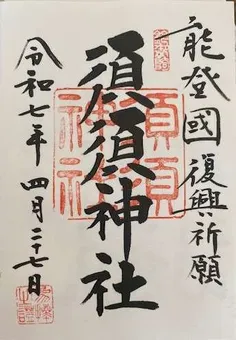 能登國 復興祈願
須須神社
須須
神社
令和七年 四月二十七日